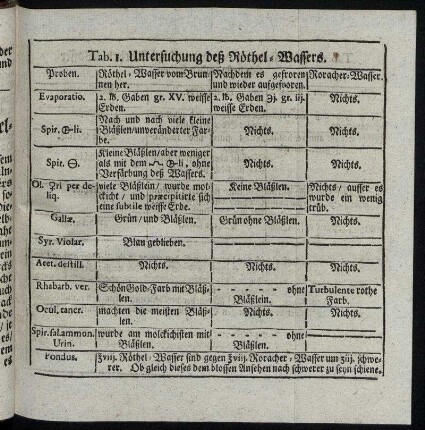 Tab. I. Untersuchung deß Röthel-Wassers.
Proben.
Röthel-Wasser vom Brun-
nen her.
Nachdem es gefroren
und wieder aufgefroren.
Roracher-Wasser.
Evaporatio.
2. ℔. Gaben gr. XV. weisse
Erden.
2. ℔. Gaben ʒj. gr. iij.
weisse Erden.
Nichts.
Spir. 🜖-li.
Nach und nach viele kleine
Bläßlen/unveränderter Far-
be.
Nichts.
Nichts.
Spir. 🜔.
Kleine Bläßlen/aber weniger
als mit dem 🜖-li, ohne
Verfärbung deß Wassers.
Nichts.
Nichts.
Ol. 🜿ri per de-
liq.
viele Bläßlein/ wurde mol-
ckicht/ und præcipitirte sich
eine subtile weisse Erde.
Keine Bläßlen.
Nichts/ ausser es
wurde ein wenig
trüb.
Gallæ.
Grün/und Bläßlen.
Grün ohne Bläßlen.
Nichts.
Syr. Violar.
Blau geblieben.
Acet. destill.
Nichts.
Nichts.
Nichts.
Rhabarb. ver.
Schön Gold-Farb mit Bläß-
len.
- - - - - ohne
Bläßlein.
Turbulente rothe
Farb.
Ocul. cancr.
machten die meisten Bläß-
len.
Nichts.
Nichts.
Spir. sal. ammon.
Urin.
wurde am molckichisten mit
Bläßlen.
- - - - - ohne
Pondus.
℥viij. Röthel-Wasser sind gegen ℥viij. Roracher-Wasser um schwe-
rer. Ob gleich dieses dem blossen Ansehen nach schwerer zu seyn schiene.